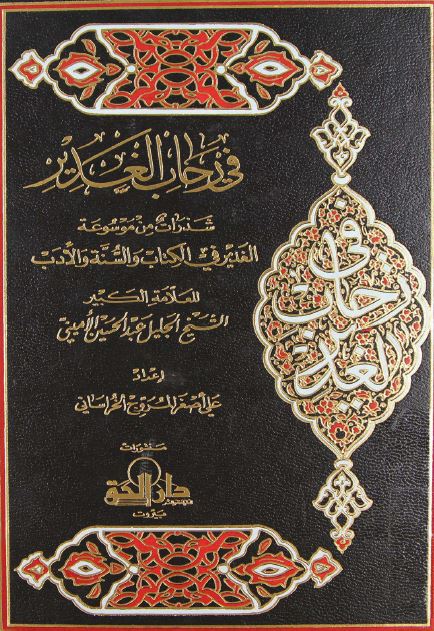 في رحاب الغدير
شذرات من موسوعة
الغدير في الكتاب والسنة والأدب
للعلامة الكبير
الشيخ الجليل عبد الحسين الأميني
إعداد
علي أصغر المروج الخراساني
منشورات
دار الحق
بيروت
في رحاب الغدير